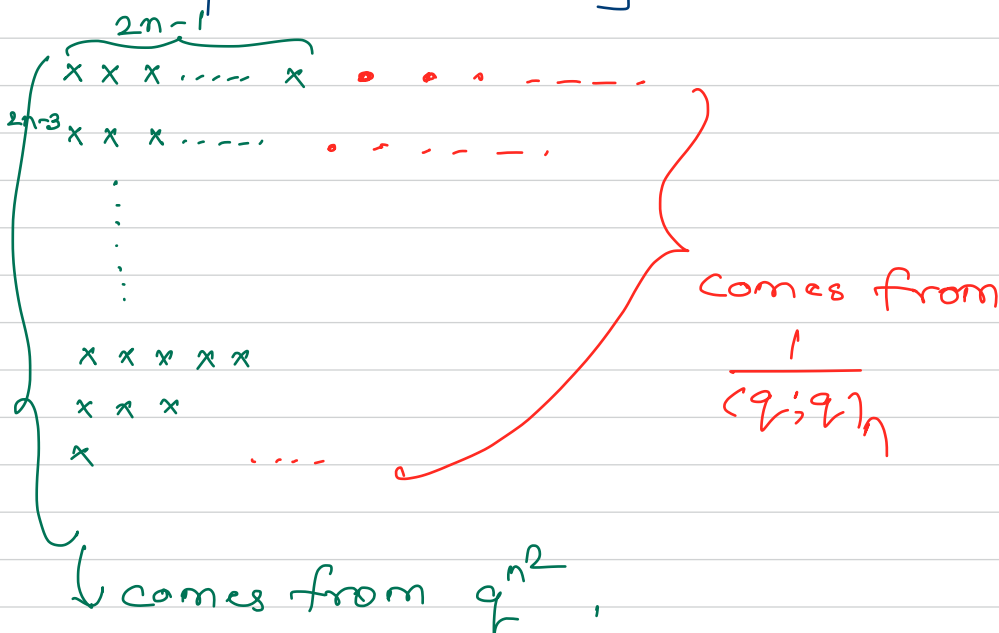 2n-1
x x x ..... x • • • - — — — .
2n-3 x x x ...... • - . - — .
x x x x x
x x x
x ....
comes from
1
(q;q)n
↓ comes from q^n^2 .